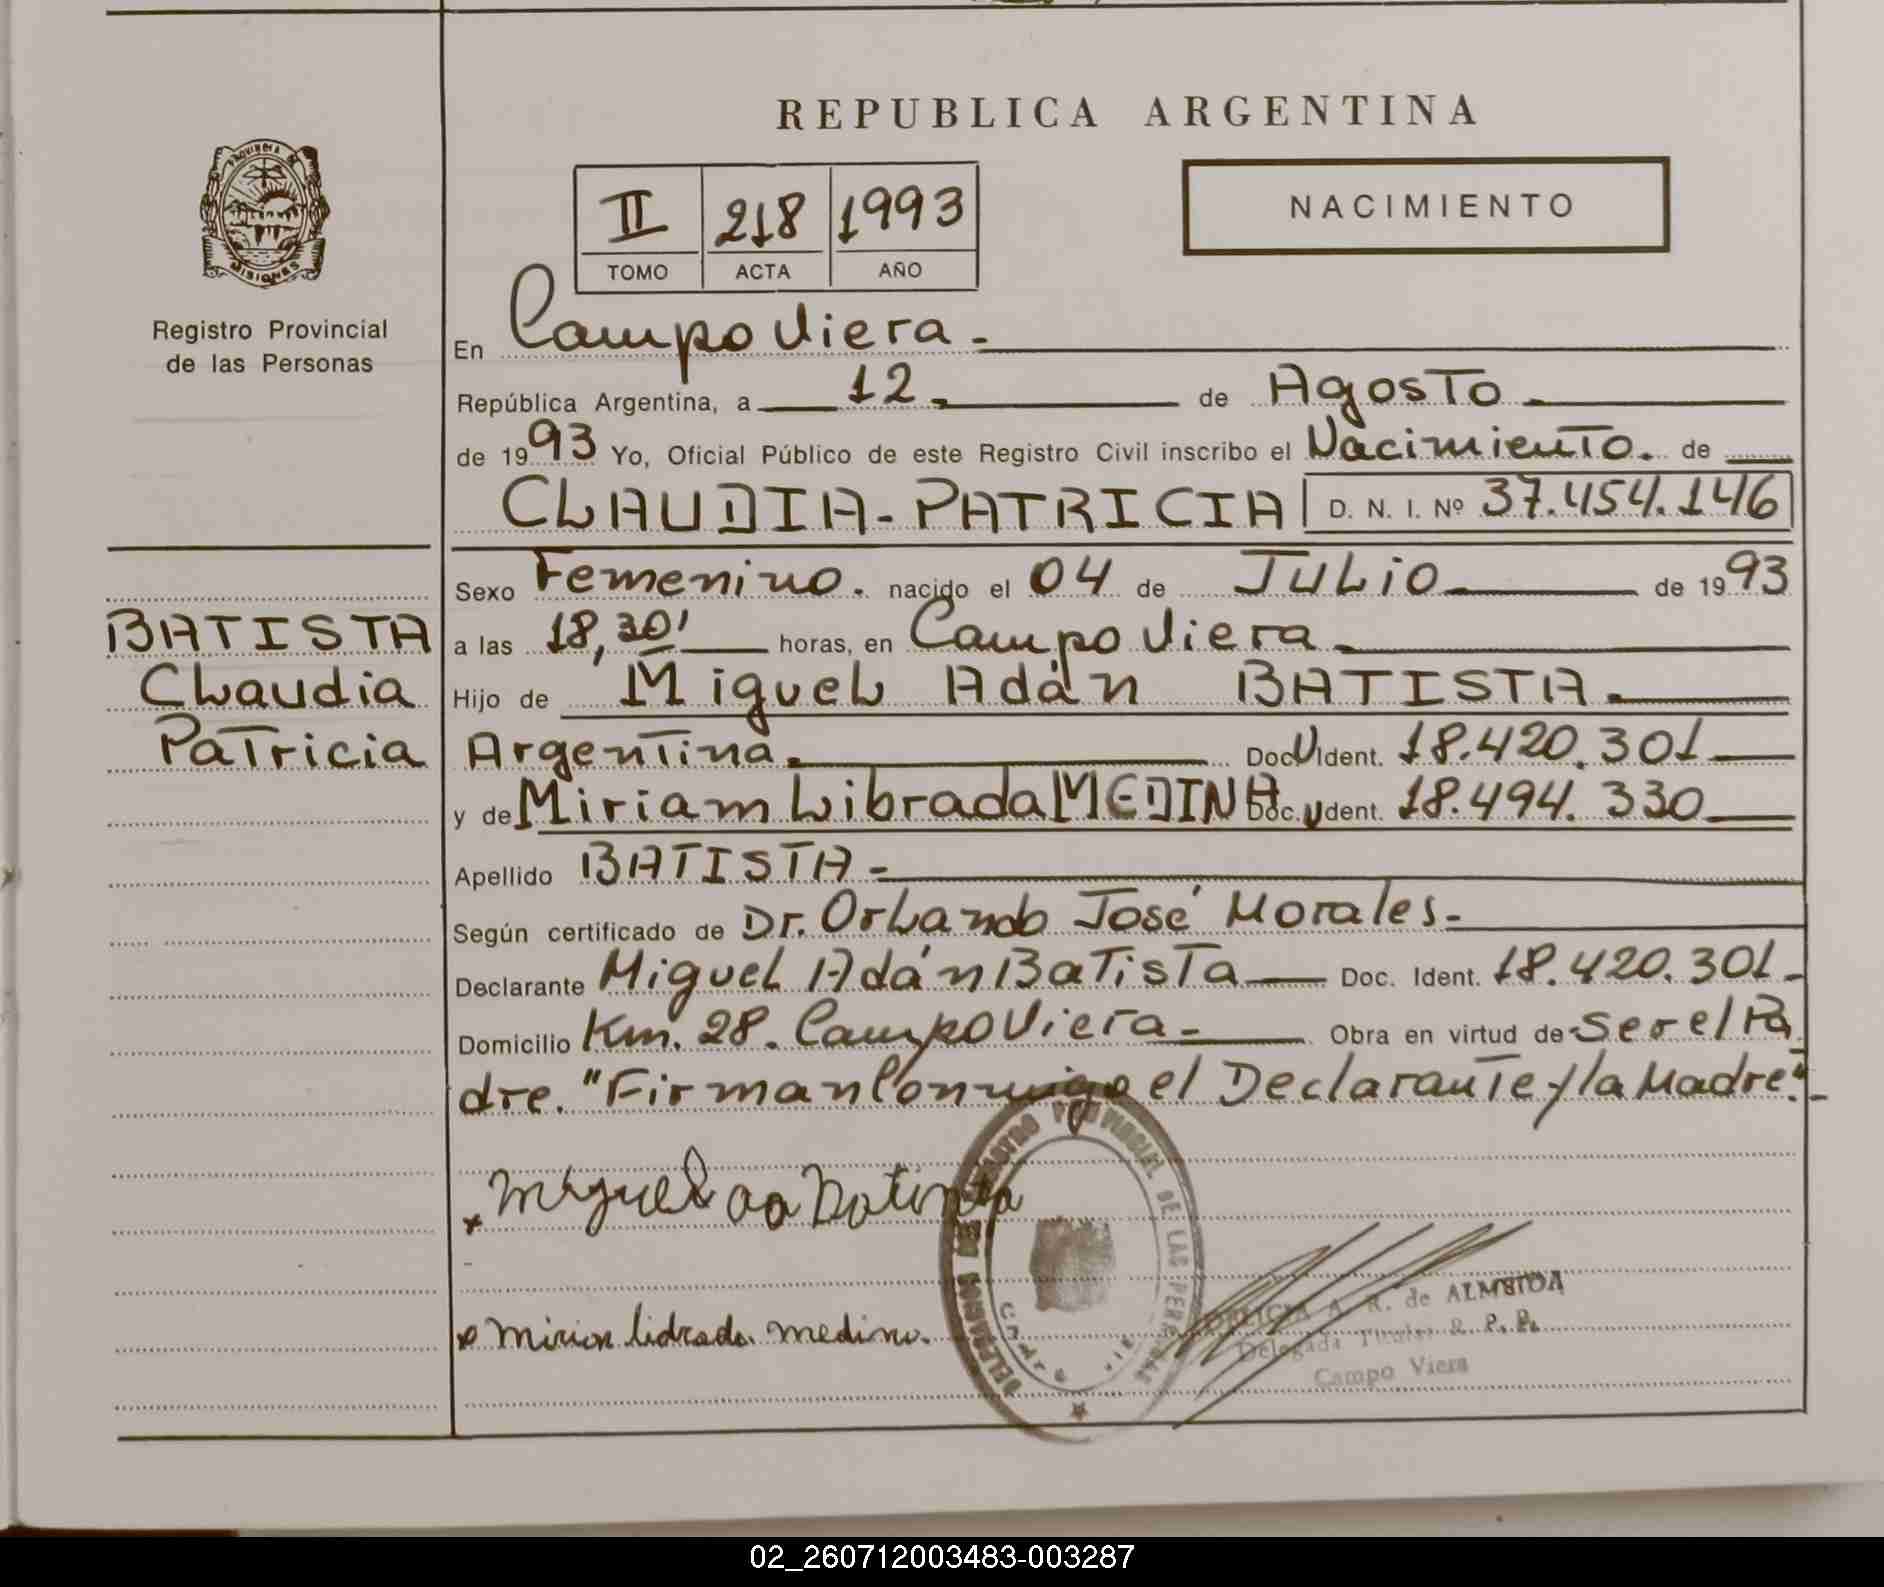 REPUBLICA ARGENTINA
PROVINCIA DE
MISIONES
Registro Provincial
de las Personas
II 218 1993
TOMO ACTA AÑO
NACIMIENTO
En Campo Viera.-
República Argentina, a 12.- de Agosto.-
de 1993 Yo, Oficial Público de este Registro Civil inscribo el Nacimiento. de
CLAUDIA-PATRICIA D. N. I. Nº 37.454.146
BATISTA
Claudia
Patricia
Sexo Femenino. nacido el 04 de JULio de 1993
a las 18,30' horas, en Campo Viera.
Hijo de Miguel Adán BATISTA.
Argentina. Doc U Ident. 18.420.301
y de Miriam Librada MEDINA Doc. U Ident. 18.494.330
Apellido BATISTA-
Según certificado de Dr. Orlando José Morales-
Declarante Miguel Adán Batista Doc. Ident. 18.420.301-
Domicilio Km. 28. Campo Viera- Obra en virtud de ser el Pa
dre. "Firman Conmigo el Declarante y la Madre".-
DELEGACION REGISTRO PROVINCIAL DE LAS PERSONAS
A. R. de ALMEIDA
Delegada Titular R. P. P.
Campo Viera
02_260712003483-003287